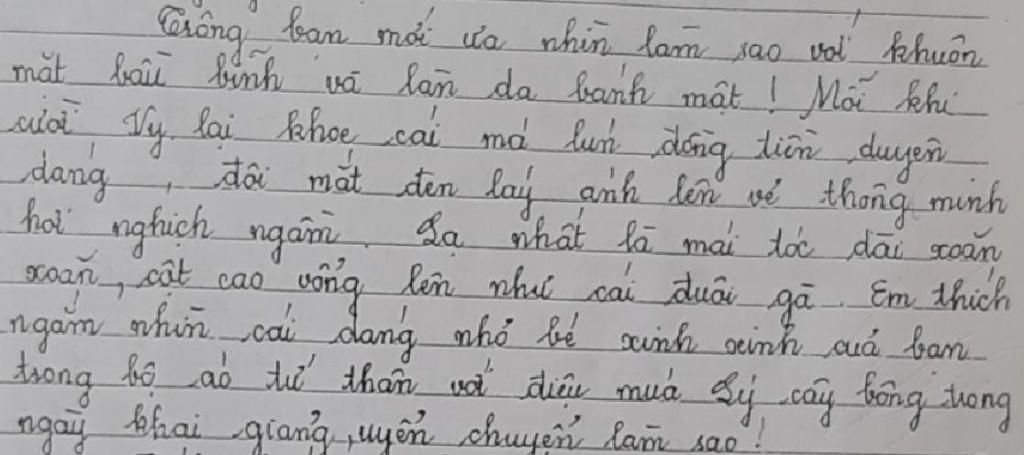 Trông bạn mới ưa nhìn làm sao với khuôn
mặt bầu bĩnh và làn da bánh mật ! Mỗi khi
cười Vy lại khoe cái má lún đồng tiền duyên
dáng , đôi mắt đen láy ánh lên vẻ thông minh
hơi nghịch ngầm . Lạ nhất là mái tóc dài xoăn
xoăn , cột cao vổng lên như cái đuôi gà . Em thích
ngắm nhìn cái dáng nhỏ bé xinh xinh của bạn
trong bộ áo tứ thân với điệu múa Lý cây bông trong
ngày khai giảng , uyển chuyển làm sao !